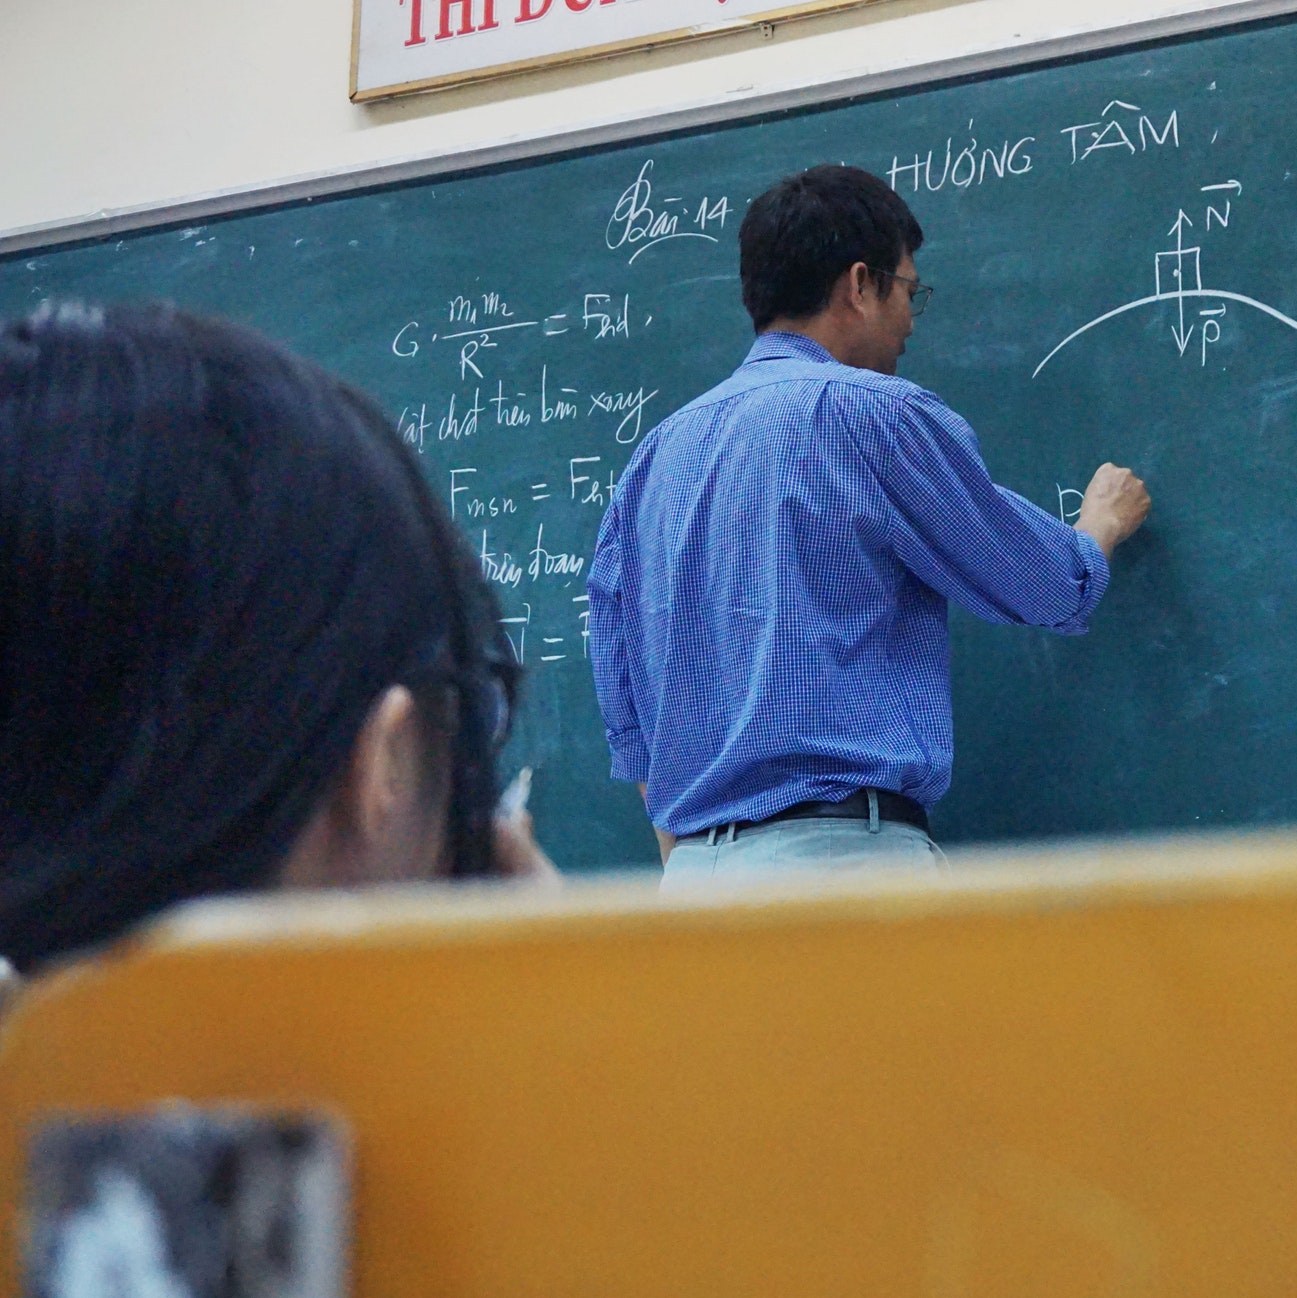 THI ĐUA
Bài 14 HƯỚNG TÂM
G. m₁m₂ / R² = Fhd.
Vật đặt trên bàn xoay
Fmsn = Fht
trên đoạn
N =
N
P
P